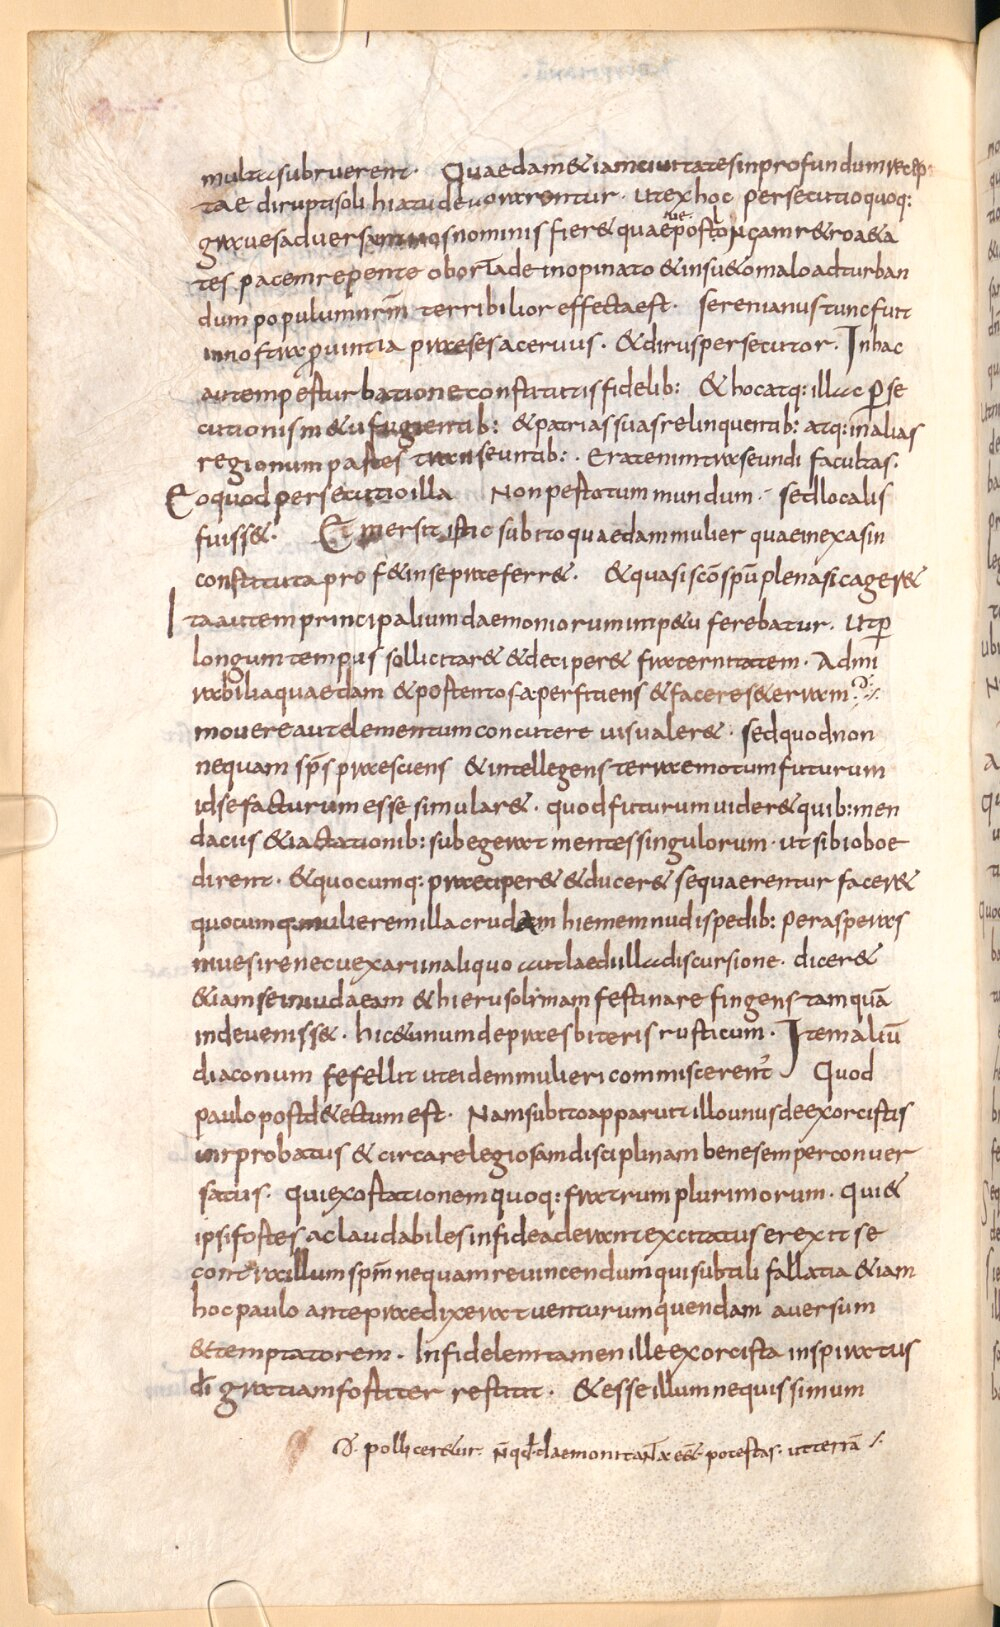 multa subruerent. Quaedam & iam ciuitates in profundum recep
tae dirupti soli hiatu deuorarentur. ut ex hoc persecutio quoq:
grauis aduersum nos nominis fier& quae post longam r&ro a&a
tes pacem repente oborta de inopinato & insu&o malo ad turban
dum populum nrm̄ terribilior effecta est. serenianus tunc fuit
in nostra ꝓuintia praeses aceruus. & dirus persecutor. In hac
autem pesturbatione constitutis fidelib: & hoc atq: illac ꝑse
cutionis m&u fugientib: & patrias suas relinquentib: atq: in alias
regionum pastes transeuntib:. Erat enim transeundi facultas.
Eo quod persecutio illa Non pestotum mundum. sed localis
fuiss&. Emersit istic subito quaedam mulier quae in exasin
constituta prof&in se praeferr&. & quasi scō spū plena sic ager&
Ita autem principalium daemoniorum imp&u ferebatur. Ut ꝑ
longum tempus sollicitar& & deciper& fraternitatem. Admi
rabilia quaedam & postentosa perficiens & facere se terram.
mouere aut elementum concutere uis ualer&. sed quod non
nequam sp̄s praesciens & intellegens terrae motum futurum
id se facturum esse simular&. quod futurum uider& quib: men
daciis & iactationib: subegerat mentes singulorum. ut sibi oboe
dirent. & quocumq: praeciper& & ducer& sequaerentur facer&
quocumq: mulierem illa cruda m hiemem nudis pedib: per asperas
niues ire nec uexari in aliquo aut laedi illa discursione. dicer&
& iam se in iudaeam & hierusolimam festinare fingens tam quā
inde ueniss&. hic & unum de praesbiteris rusticum. Item aliū
diaconum fefellit ut eidem mulieri commiscerent Quod
paulo post d&ectum est. Nam subito apparuit illo unus de exorcistis
uir probatus & circa relegiosam disciplinam bene semper conuer
satus. qui exostatione quoq: fratrum plurimorum. qui &
ipsi fostes ac laudabiles in fide aderant excitatus erexit se
contra illum spm̄ nequam reuincendum qui subtili fallatia &iam
hoc paulo ante praedixerat uenturum quendam auersum
& temptatorem. Infidelem tamen ille exorcista inspiratus
dī gratiam fostiter restitit. & esse illum nequissimum
pollicer&ur. Nūqd daemoni tanta ess& potestas. ut terrā